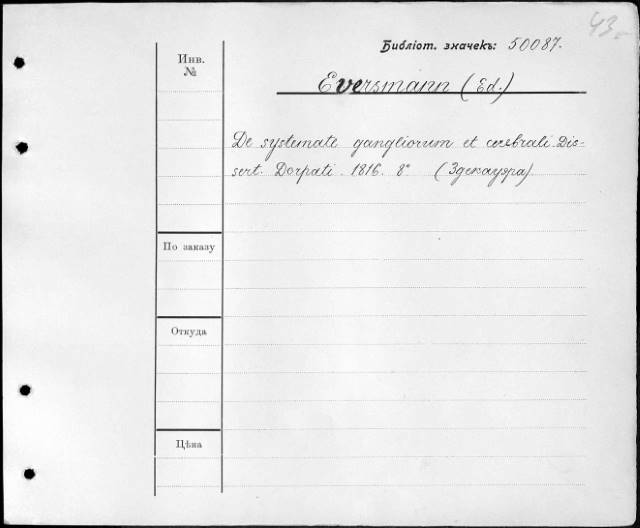 43.
Библіот. значекъ: 50087.
Инв.
№
Eversmann (Ed.)
De systemate gangliorum et cerebrali. Dis-
sert. Dorpati. 1816. 8°
По заказу
Откуда
Цѣна